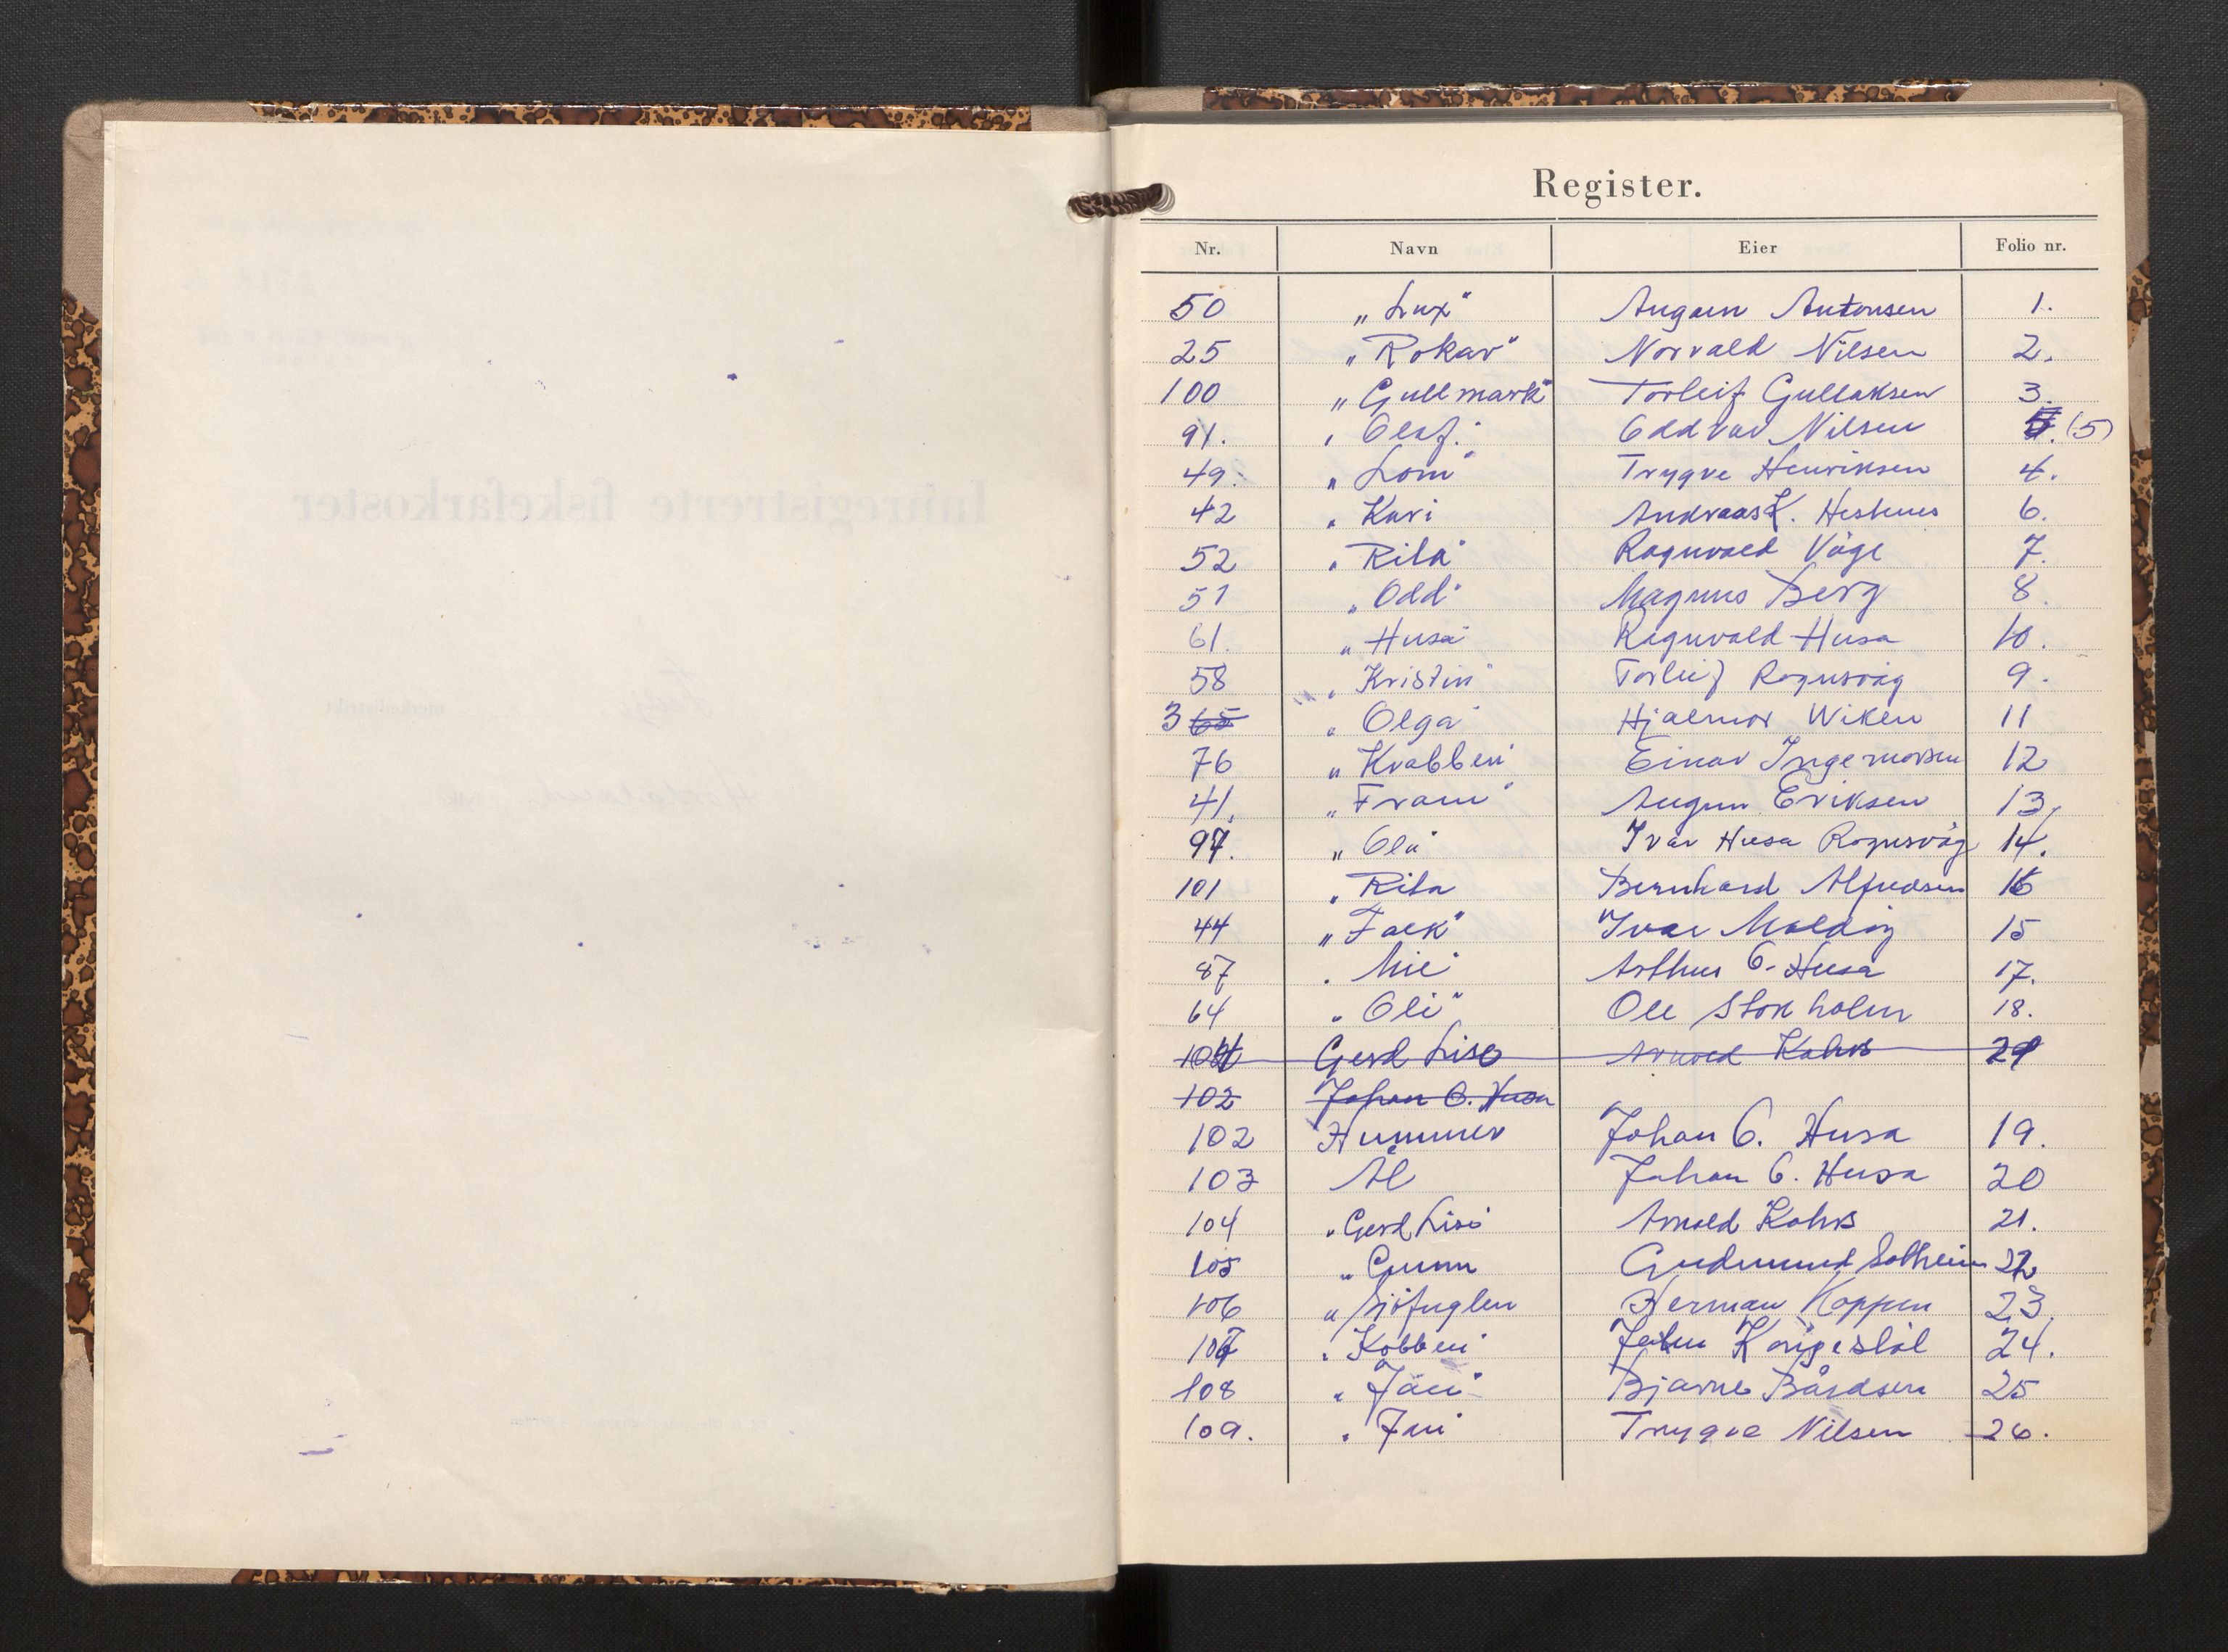 Register.
Nr. Navn Eier Folio nr.
50 „Lux“ Augun Antonsen 1.
25 „Rokar“ Norvald Nilsen 2.
100 „Gullmark“ Torleif Gullaksen 3.
91. „Olaf“ Oddvar Nilsen 5. (5)
49. „Lom“ Trygve Henriksen 4.
42 „Kari Andreas K. Heshus 6.
52 „Rita“ Ragnvald Våge 7.
51 „Odd“ Magnus Berg 8.
61. „Husa“ Ragnvald Husa 10.
58 „Kristin“ Torleif Rognsvåg 9.
3 65 „Olga“ Hjalmar Wiken 11
76 „Krabben“ Einar Ingemorsen 12
41. „Fram“ Augun Eriksen 13,
97. „Ola“ Ivar Husa Rognsvåg 14.
101 „Rita Bernhard Alfredsen 16
44 „Falk“ Ivar Maldöy 15
87 „Mie“ Arthur O. Husa 17.
64 „Oli“ Ole Stokholm 18.
104 Gerd Lise Arnold Kahrs 21
102 Johan O. Husa
102 Hummer Johan O. Husa 19.
103 Ål Johan O. Husa 20
104 „Gerd Lise“ Arnold Kahrs 21.
105 „Gunn Gudmund Solheim 22
106 „Sjöfuglen Herman Koppen 23.
107 „Kobben“ 24.
108 „Jan“ Bjarne Bårdsen 25
109. Trygve Nilsen 26.